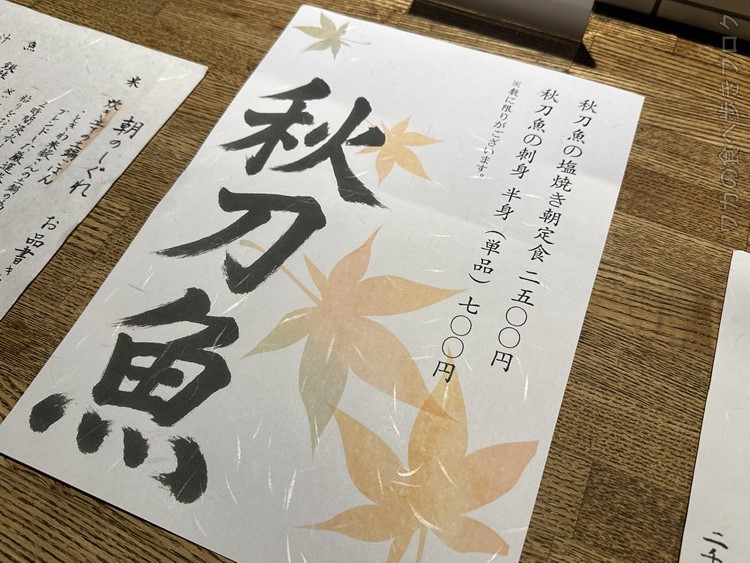 秋刀魚の塩焼き朝定食 二五〇〇円
秋刀魚の刺身 半身（単品）七〇〇円
※数に限りがございます。
秋刀魚
朝のしぐれ お品書き
米
魚
汁
二千
ワカの食べ歩きブログ